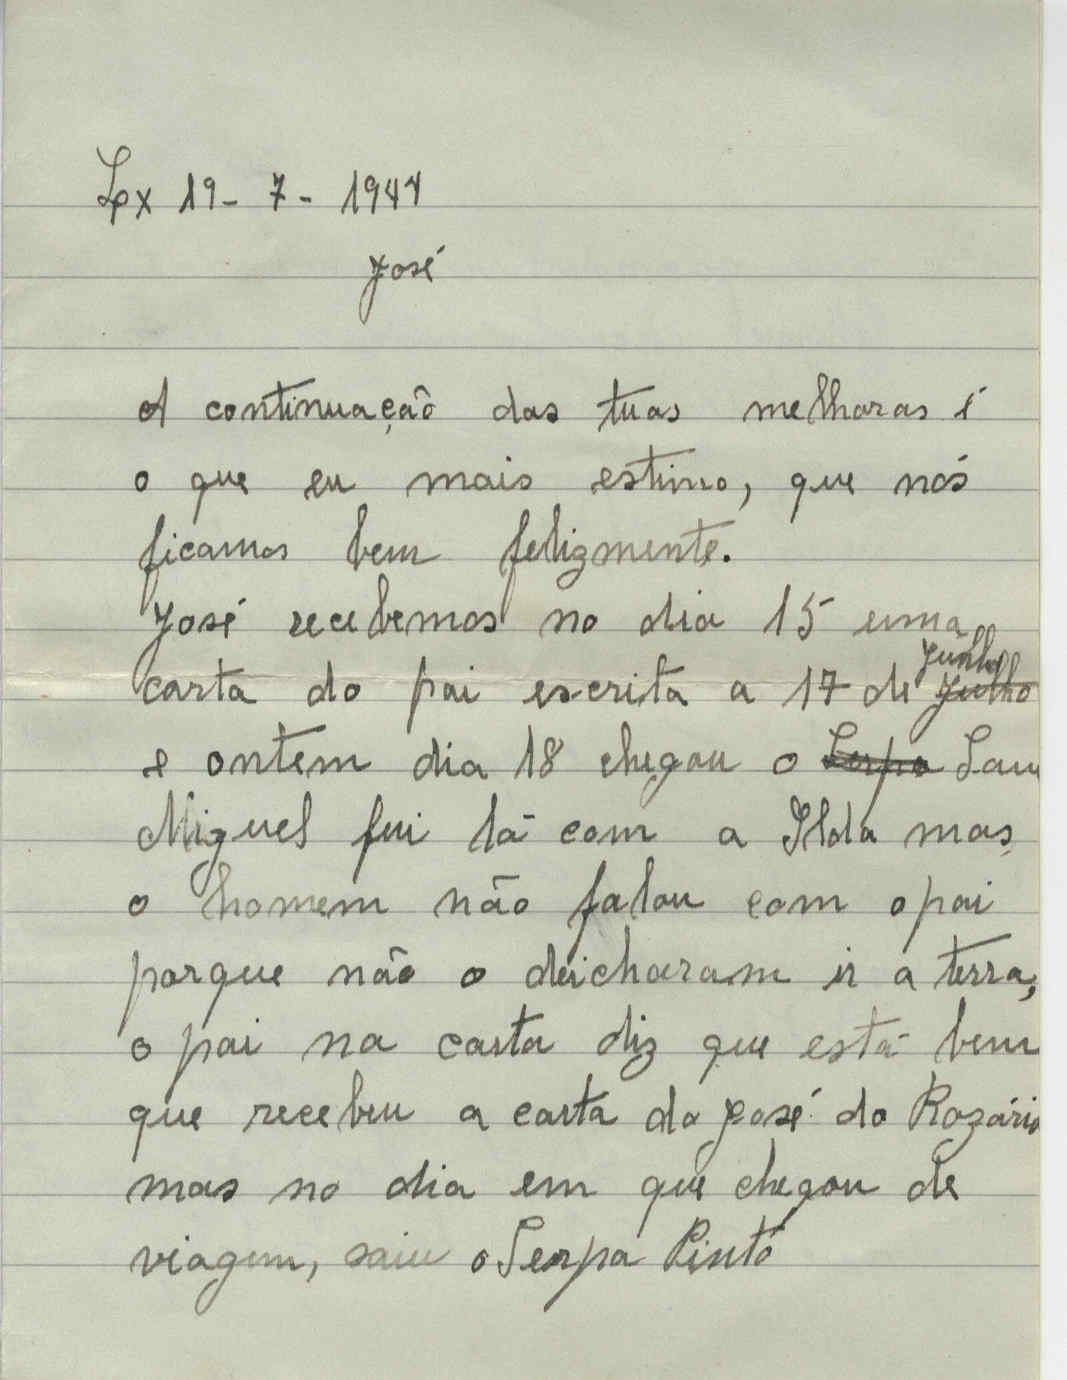 Lx 19-7-1947
José
A continuação das tuas melharas é
o que eu mais estimo, que nós
ficamos bem felizmente.
José recebemos no dia 15 uma
Junho
carta do pai escrita a 17 de Julho
e ontem dia 18 chegou o Serpa Sam
Miguel fui lá com a Ilda mas
o homem não falou com o pai
porque não o deicharam ir a terra,
o pai na carta diz que está bem
que recebeu a carta do José do Rozário
mas no dia em que chegou de
viagem, saiu o Serpa Pinto